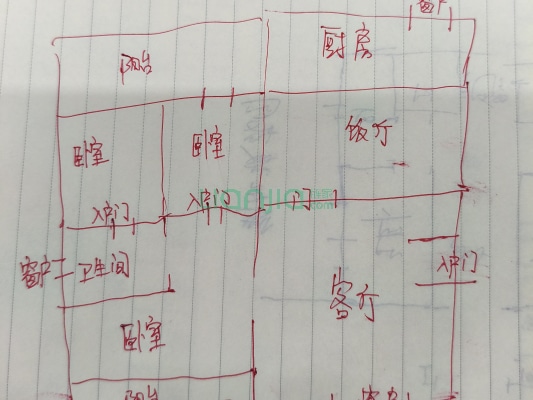 窗户
阳台
厨房
卧室
卧室
饭厅
入户门
入户门
门
窗户
卫生间
入户门
客厅
卧室
阳台